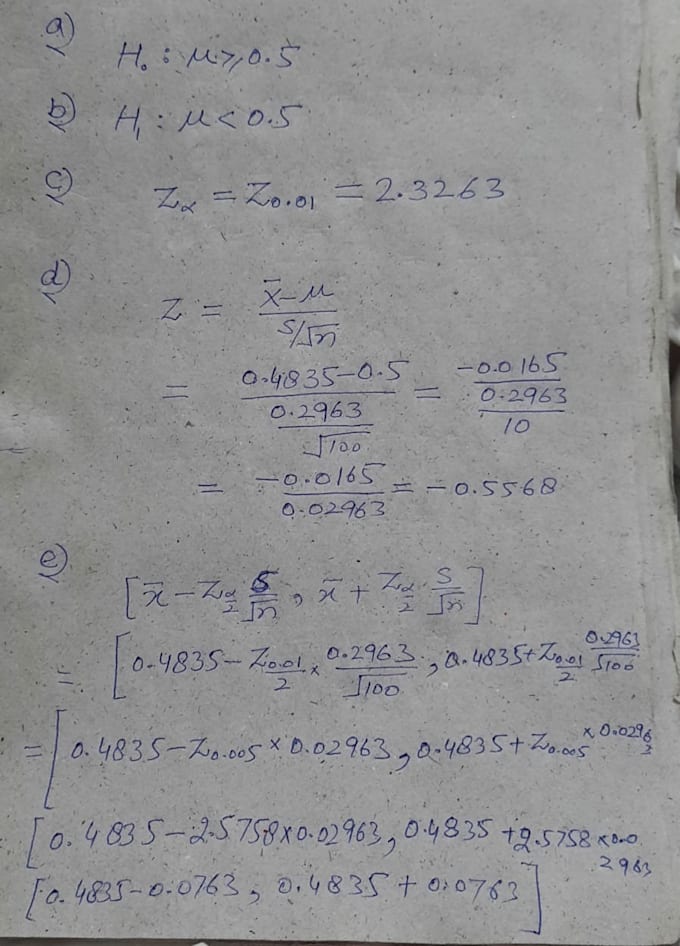 a) H₀ : μ ⩾ 0.5
b) H₁ : μ < 0.5
c) Zα = Z0.01 = 2.3263
d) Z = (x̄ - μ) / (S/√n)
= (0.4835 - 0.5) / (0.2963/√100) = -0.0165 / (0.2963/10)
= -0.0165 / 0.02963 = -0.5568
e) [x̄ - Zα/2 S/√n, x̄ + Zα/2 · S/√n]
= [0.4835 - Z0.01/2 × 0.2963/√100, 0.4835 + Z0.01/2 0.2963/√100
= [0.4835 - Z0.005 × 0.02963, 0.4835 + Z0.005 × 0.02963
[0.4835 - 2.5758 × 0.02963, 0.4835 + 2.5758 × 0.02963
[0.4835 - 0.0763, 0.4835 + 0.0763]